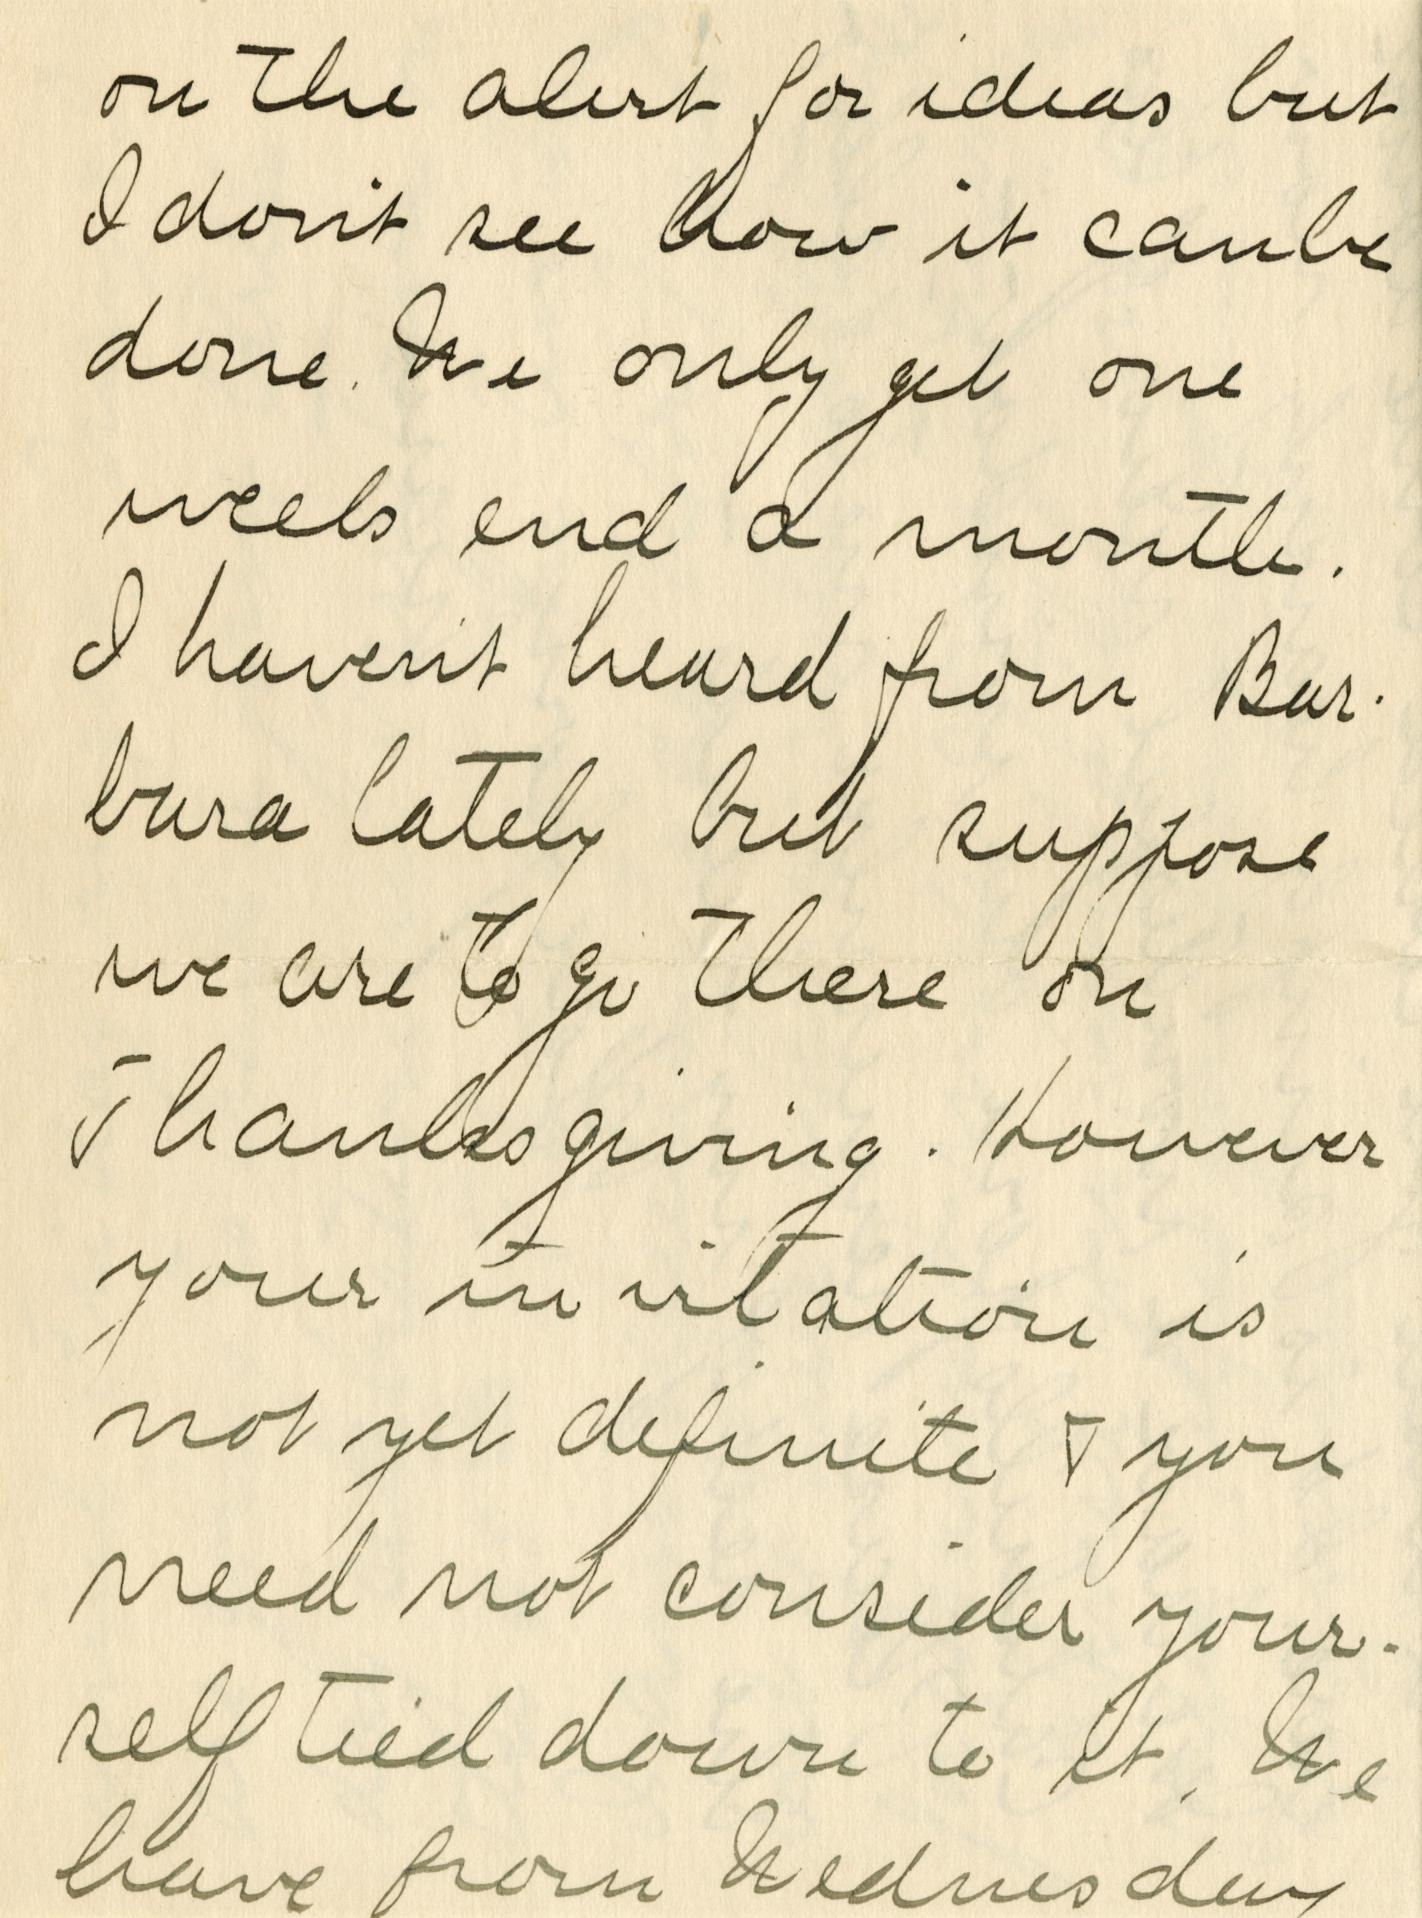 on the alert for ideas but
I don't see how it can be
done. We only get one
week end a month.
I haven't heard from Bar-
bara lately but suppose
we are to go there on
Thanksgiving. However
your invitation is
not yet definite & you
need not consider your-
self tied down to it. We
have from Wednesday